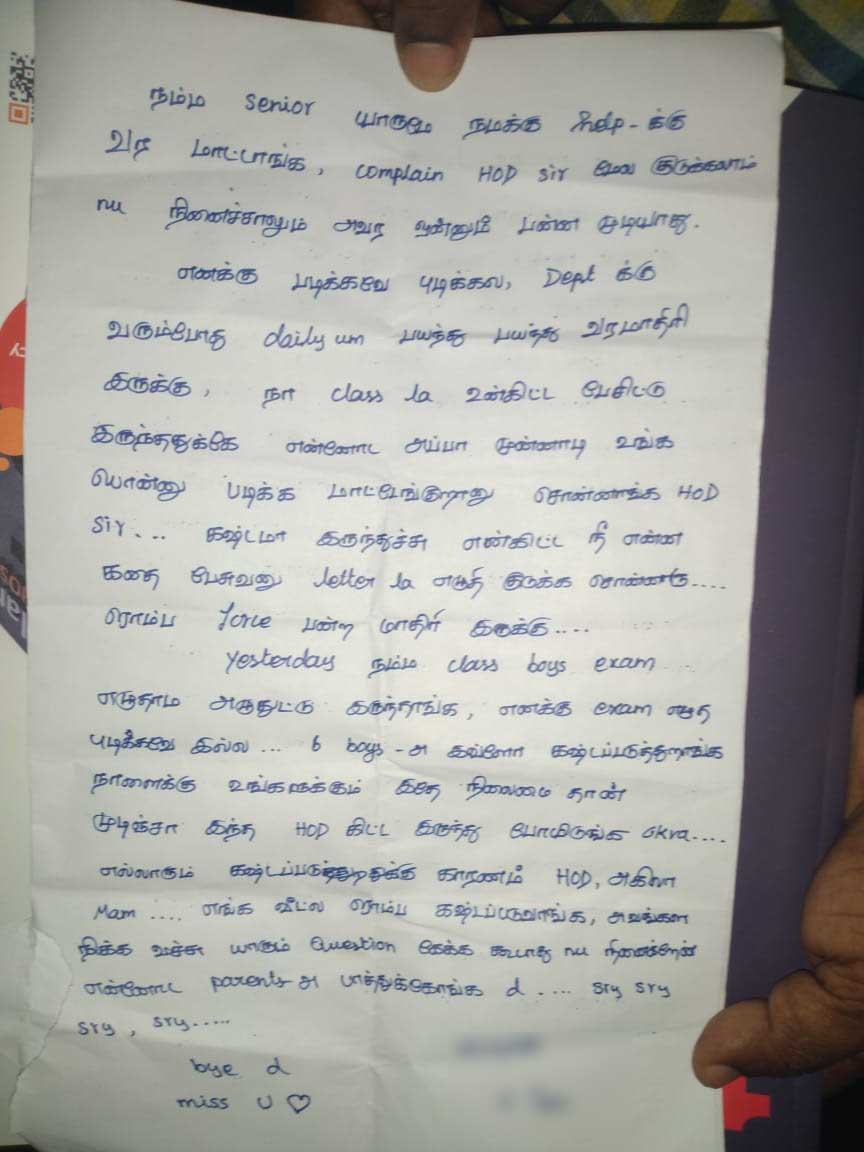 நம்ம senior யாருமே நமக்கு help-க்கு
வர மாட்டாங்க, complain HOD sir மேல குடுக்கலாம்
nu நினைச்சாலும் அவர ஒன்னும் பன்ன முடியாது.
எனக்கு படிக்கவே புடிக்கல, Dept க்கு
வரும்போது daily um பயந்து பயந்து வரமாதிரி
இருக்கு, நா class la உன்கிட்ட பேசிட்டு
இருந்ததுக்கே என்னோட அப்பா முன்னாடி உங்க
பொன்னு படிக்க மாட்டேங்குறாது சொன்னாங்க HOD
sir... கஷ்டமா இருந்துச்சு என்கிட்ட நீ என்ன
கதை பேசுவனு letter la எழுதி குடுக்க சொன்னாரு....
ரொம்ப force பன்ற மாதிரி இருக்கு....
yesterday நம்ம class boys exam
எழுதாம அழுதுட்டு இருந்தாங்க, எனக்கு exam எழுத
புடிக்கவே இல்ல... 6 boys-அ இவ்ளோ கஷ்டப்படுத்துறாங்க
நாளைக்கு உங்களுக்கும் இதே நிலைமை தான்
முடிஞ்சா இந்த HOD கிட்ட இருந்து போயிடுங்க
எல்லாரும் கஷ்டப்படுத்துறதுக்கு காரணம் HOD, அகிலா
Mam.... எங்க வீட்ல ரொம்ப கஷ்டப்படுவாங்க, அவங்கள
நிக்க வச்சு யாரும் Question கேக்க கூடாது nu நினைச்சேன்
என்னோட parents அ பாத்துக்கோங்க d.... sry sry
sry, sry.....
bye d
miss u ♡